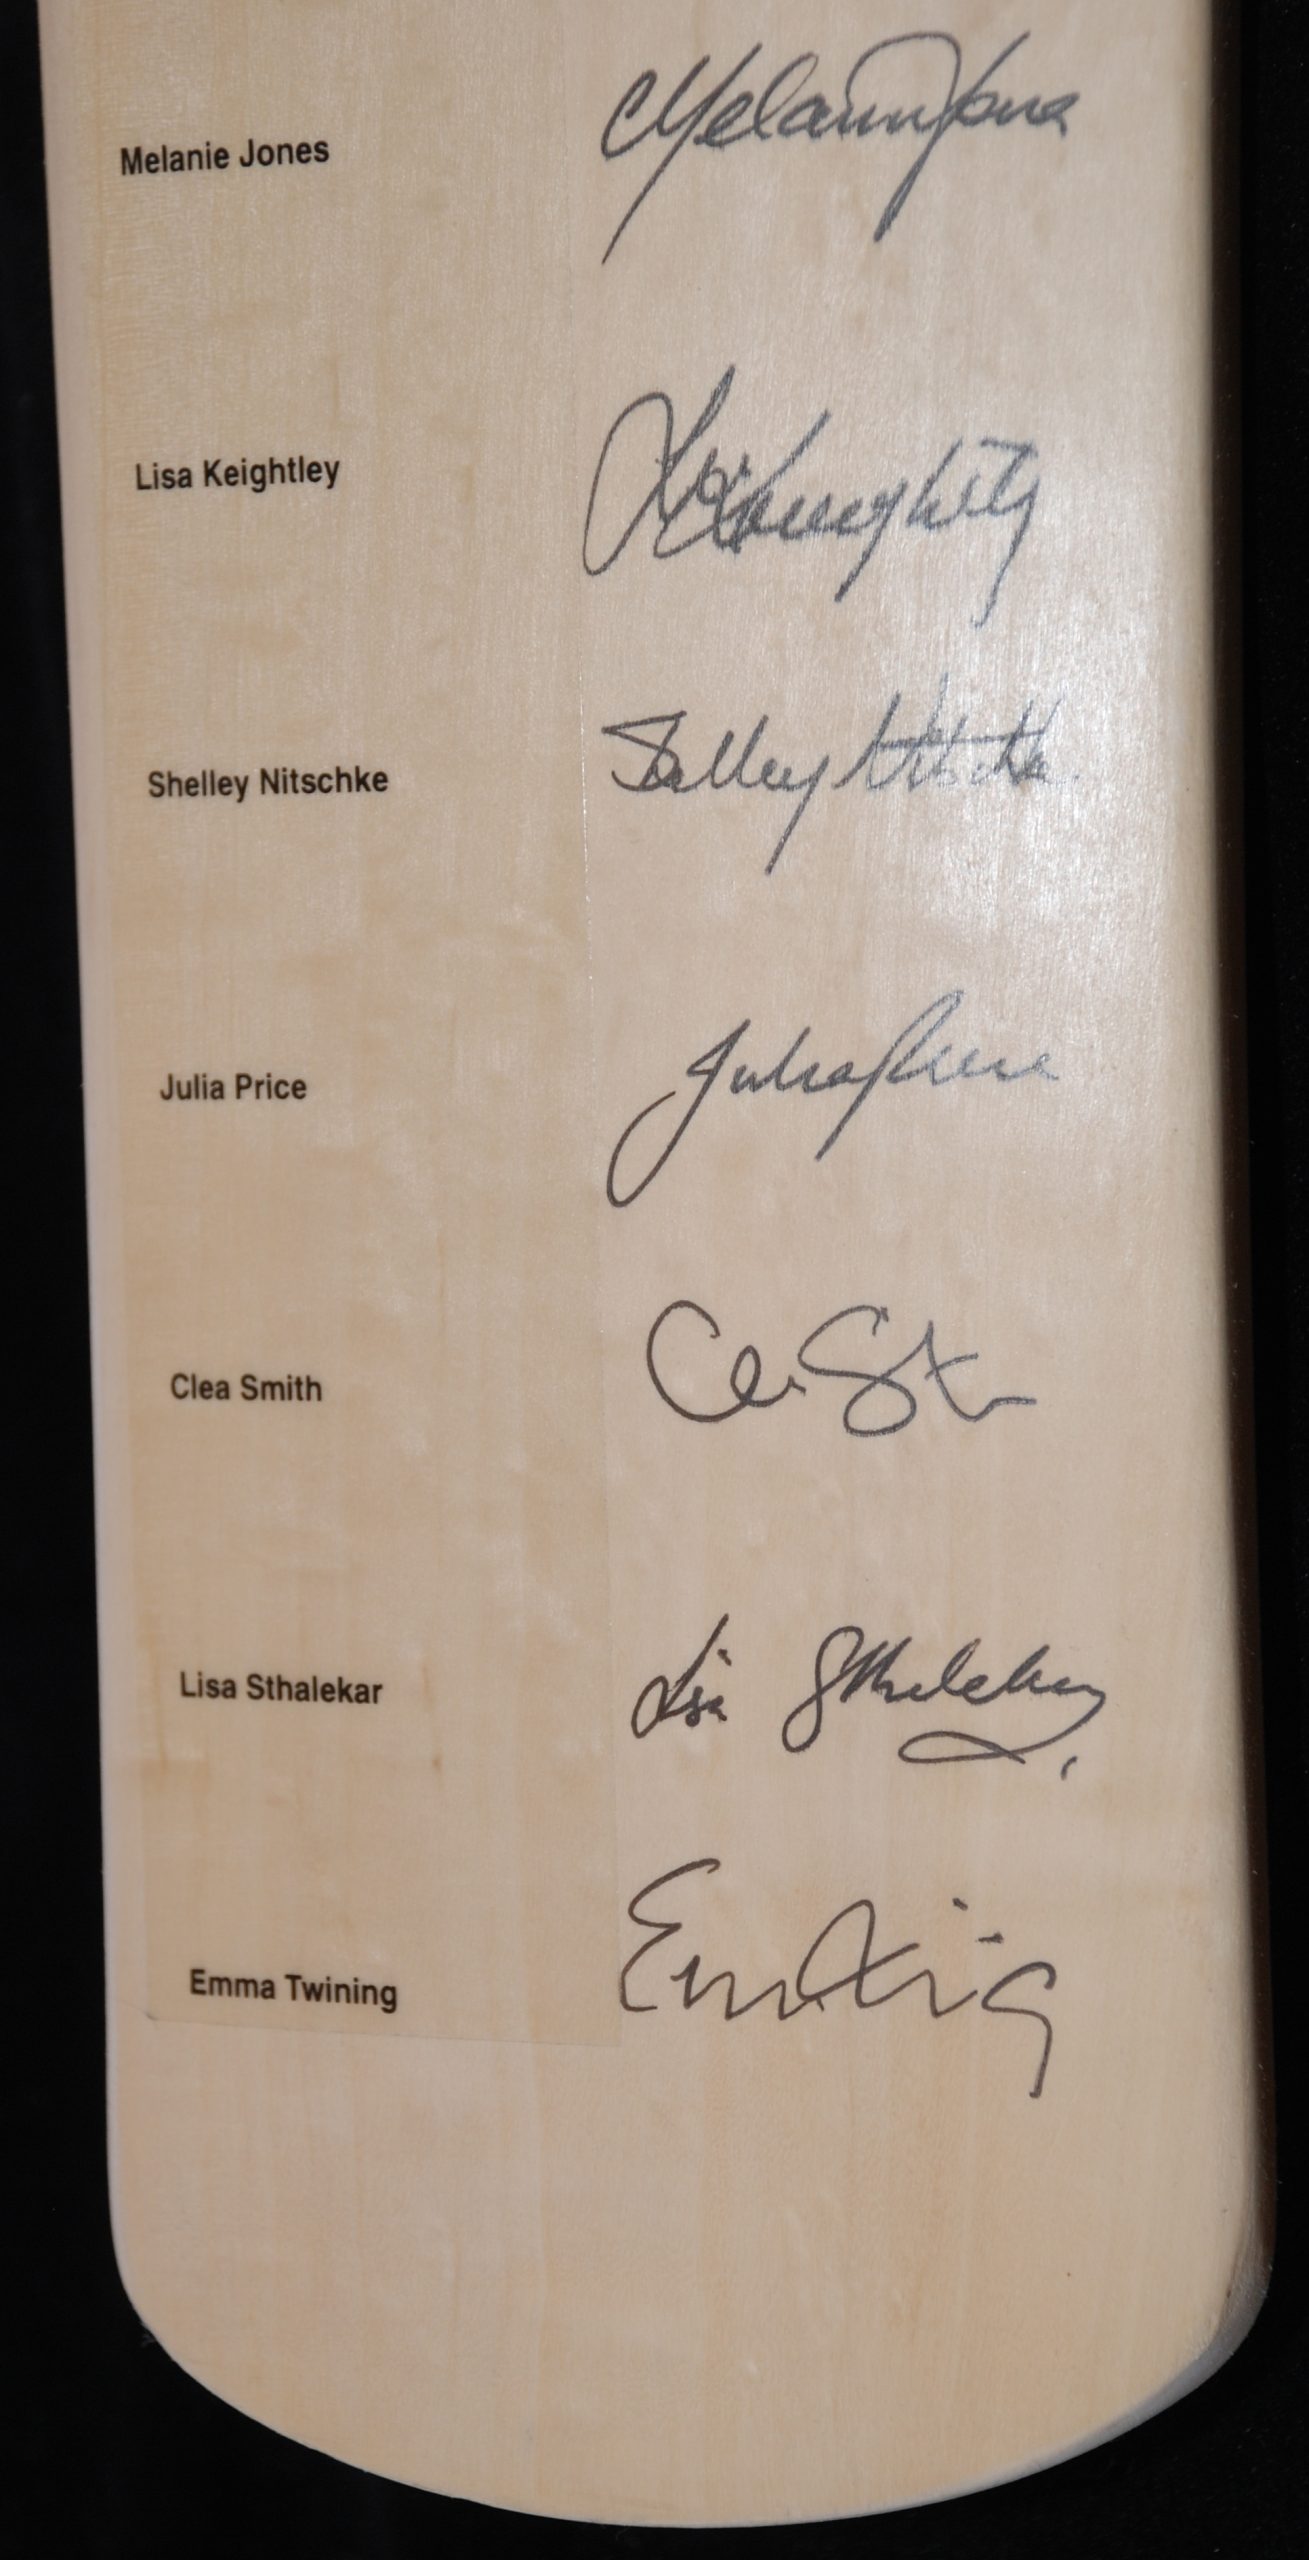 Melanie Jones Melanie Jones
Lisa Keightley L Keightley
Shelley Nitschke Shelley Nitschke
Julia Price Julia Price
Clea Smith
Lisa Sthalekar Lisa Sthalekar
Emma Twining